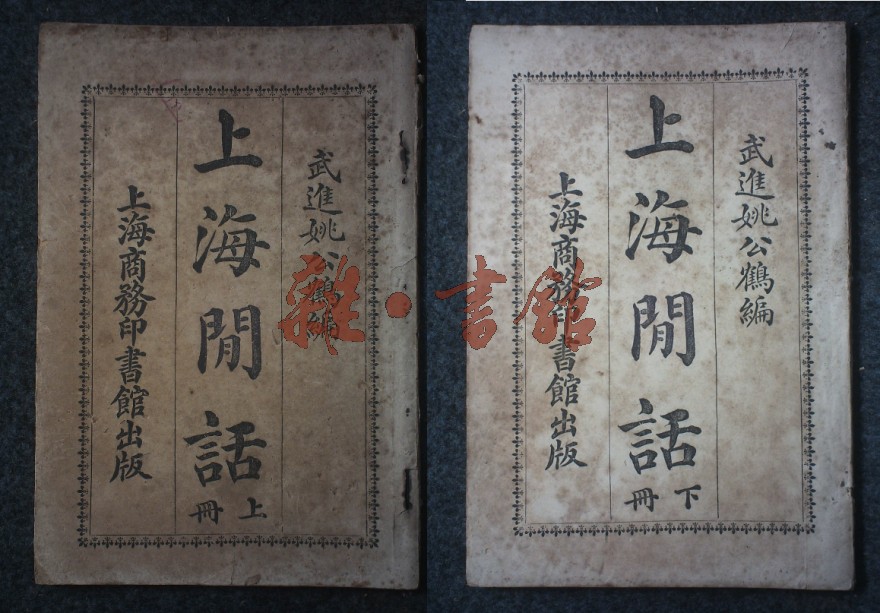 武進姚公鶴編
上海閒話
上冊
上海商務印書館出版
武進姚公鶴編
上海閒話
下冊
上海商務印書館出版
雜·書館